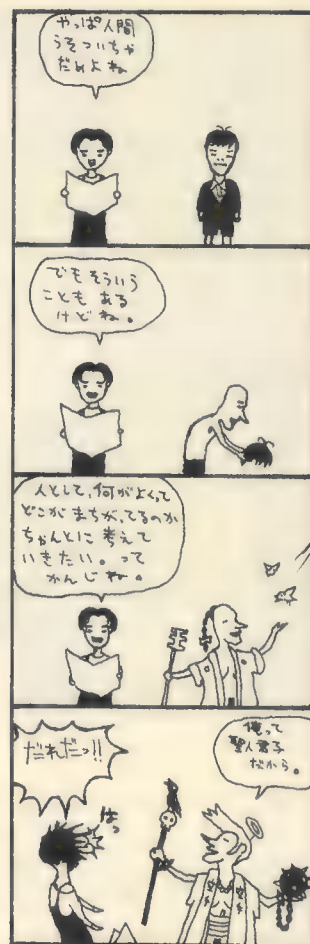 やっぱ人間
うそついちゃ
だめよね
でもそういう
こともある
けどね。
人として、何がよくって
どこがまちがってるのか
ちゃんとに考えて
いきたい。って
かんじね。
俺って
聖人君子
だから。
だれだっ!!
はっ